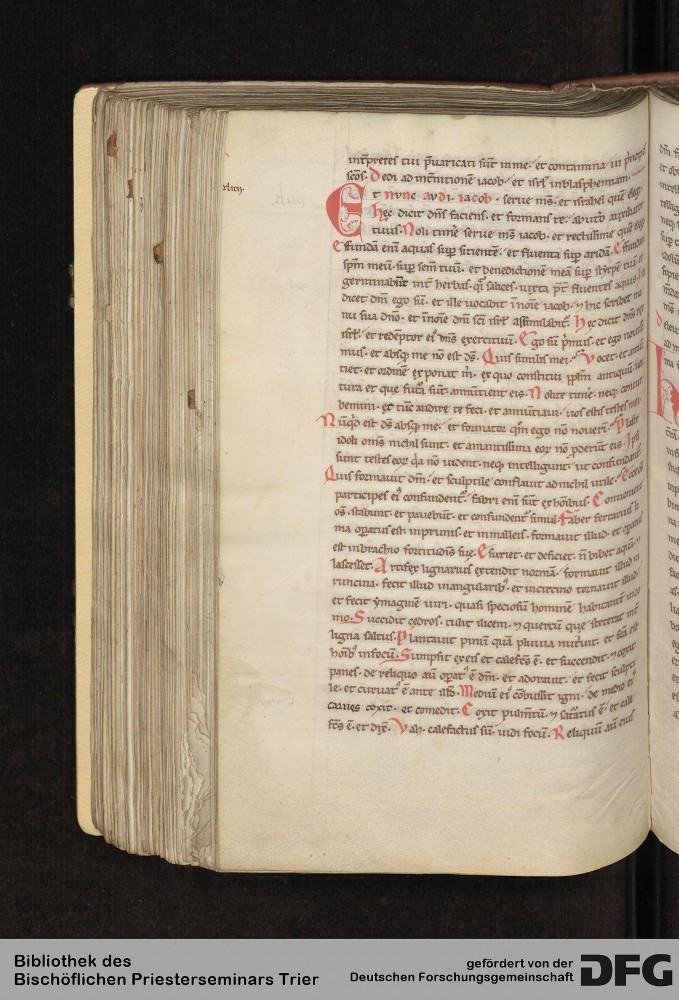 xliiij.
int̄pretes tui p̄uaricati sūt in me. et contamina ui p̄ncipes
sc̄os. Dedi ad int̄nitionē iacob. et isrl̄ in blasphemiam.
Et nunc audi iacob. serue m̄s. et israhel quē elegi.
Hęc dicit dn̄s faciens. et formans te. ab utero auxiliator
tuus. Noli timere serue m̄s iacob. et rectissime quē elegi
Effundā enī aquas suꝑ sitientē. et fluenta suꝑ aridā. Effundam
sp̄m meū. suꝑ sem̄ tuū. et benedictionē meā suꝑ stirpē tuā. et
germinabūt int̄ herbas. qͥ salices. iuxta p̄t fluentes aquas. Iste
dicet dn̄i ego sū. et ille uocabit ī noīe iacob. ⁊ hic scribet ma
nu sua dn̄o. et ī noīe dn̄i sc̄i isrl̄ assimilabit᷑. Hęc dicit dn̄s rex
isrl̄. et redēptor eiꝰ dn̄s exercituū. Ego sū p̄mus. et ego nouissi
mus. et absqꝫ me nō est ds̄. Quis similis mei. Vocet. et annun
tiet. et ordinē exponat m̄. ex quo constitui pp̄lm̄ antiquū. uen
tura et que futͣa sūt annūtient eis. Nolite timē. neqꝫ contur
bemini. ex tūc audire te feci. et annūtiaui. uos estis testes mei.
Nūqͥd est ds̄ absqꝫ me. et formator qm̄ ego nō nouerī. Plaste
idoli om̄s nichil sunt. et amantissima eoꝝ nō ꝓderūt eis. Ipsi
sunt testes eoꝝ qͥa nō uident. neqꝫ intelligunt. ut confundant᷑.
Quis formauit dm̄. et sculptile conflauit ad nichil utile. Ecce om̄s
participes eiꝰ confundent᷑. fabri enī sūt ex hōibus. Conuenient
om̄s. stabunt. et pauebūt. et confundent᷑ simul. Faber ferrarius li
ma oꝑatus est. in prunis et in malleis. formauit illud. et oꝑatus
est in brachio fortitudinis suę. Esuriet. et deficiet. n̄ bibet aquā. ⁊
lascescet. Artifex lignarius extendit normā. formauit illud in
runcina. fecit illud in angularibꝰ. et in circino tornauit illud.
et fecit ymaginē uiri. quasi speciosū hominē habitantē in do
mo. Succidit cedros. tulit ilicem. ⁊ quercū que steterat int̄
ligna saltus. Plantauit pinū quā pluuia nutͥuit. et fcā est
hōibꝰ in focū. Sumpsit ex eis et calefcs̄ ē. et succendit. ⁊ coxit
panes. de reliquo aū oꝑatꝰ ē dm̄. et adorauit. et fecit sculpti
le. et curuatꝰ ē ante illd̄. Mediū eiꝰ cōbussit igni. de medio eiꝰ
carnes coxit. et comedit. Coxit pulm̄tū. ⁊ satͣtus ē. et cale
fcs̄ ē. et dix̄. Vah. calefactus sū. uidi focū. Reliquū aū eius
Bibliothek des
Bischöflichen Priesterseminars Trier
gefördert von der
Deutschen Forschungsgemeinschaft
DFG